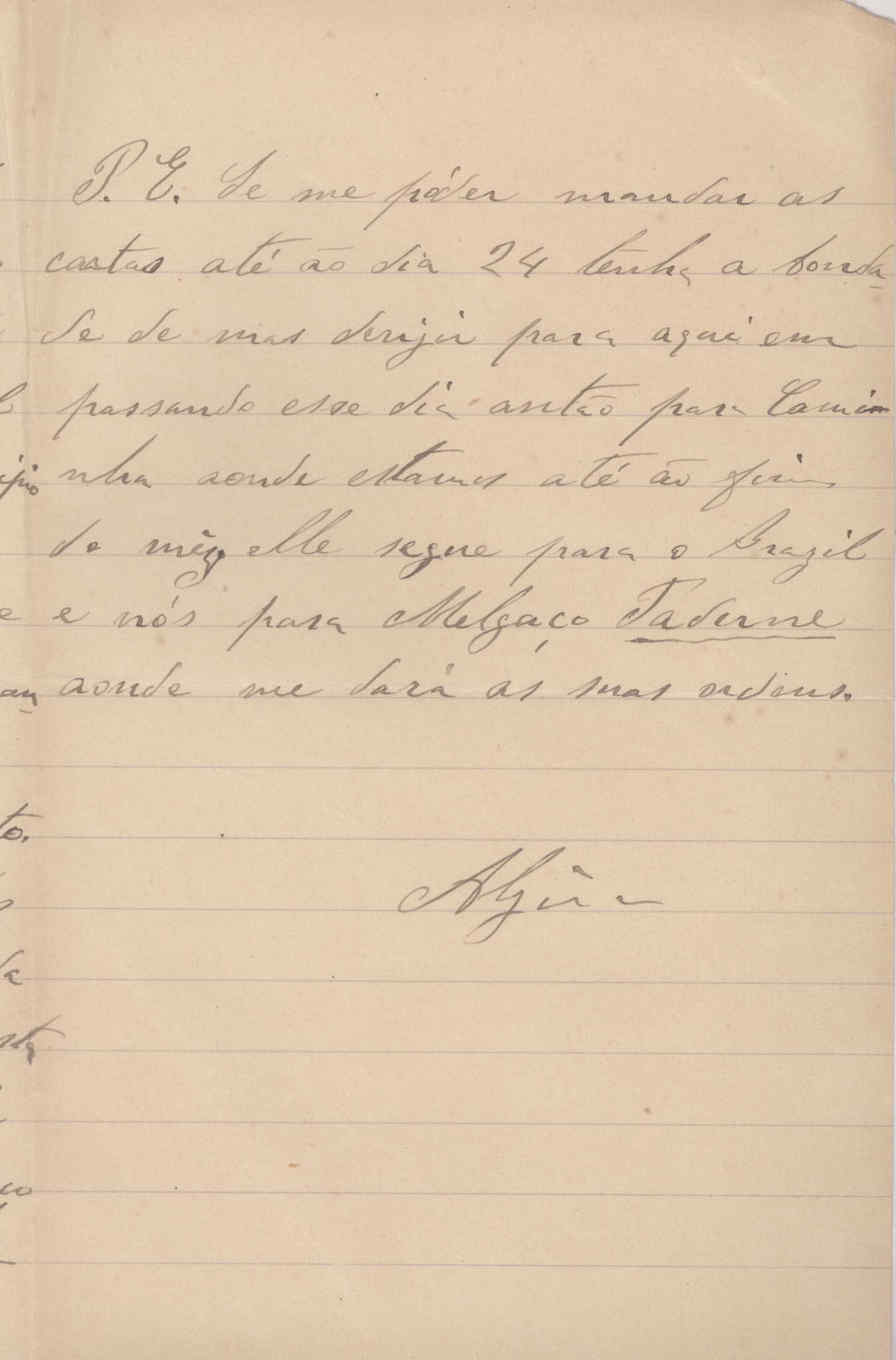 P. E. Se me póder mandar as
cartas até ão dia 24 tenha a bonda-
de de mas derijir para aqui em
passando esse dia antão para Cami-
nha aonde estamos até ão fim
do mêz elle segue para o Brazil
e nós para Melgaço Paderne
aonde me dará as suas ordens.
to.
da
sta